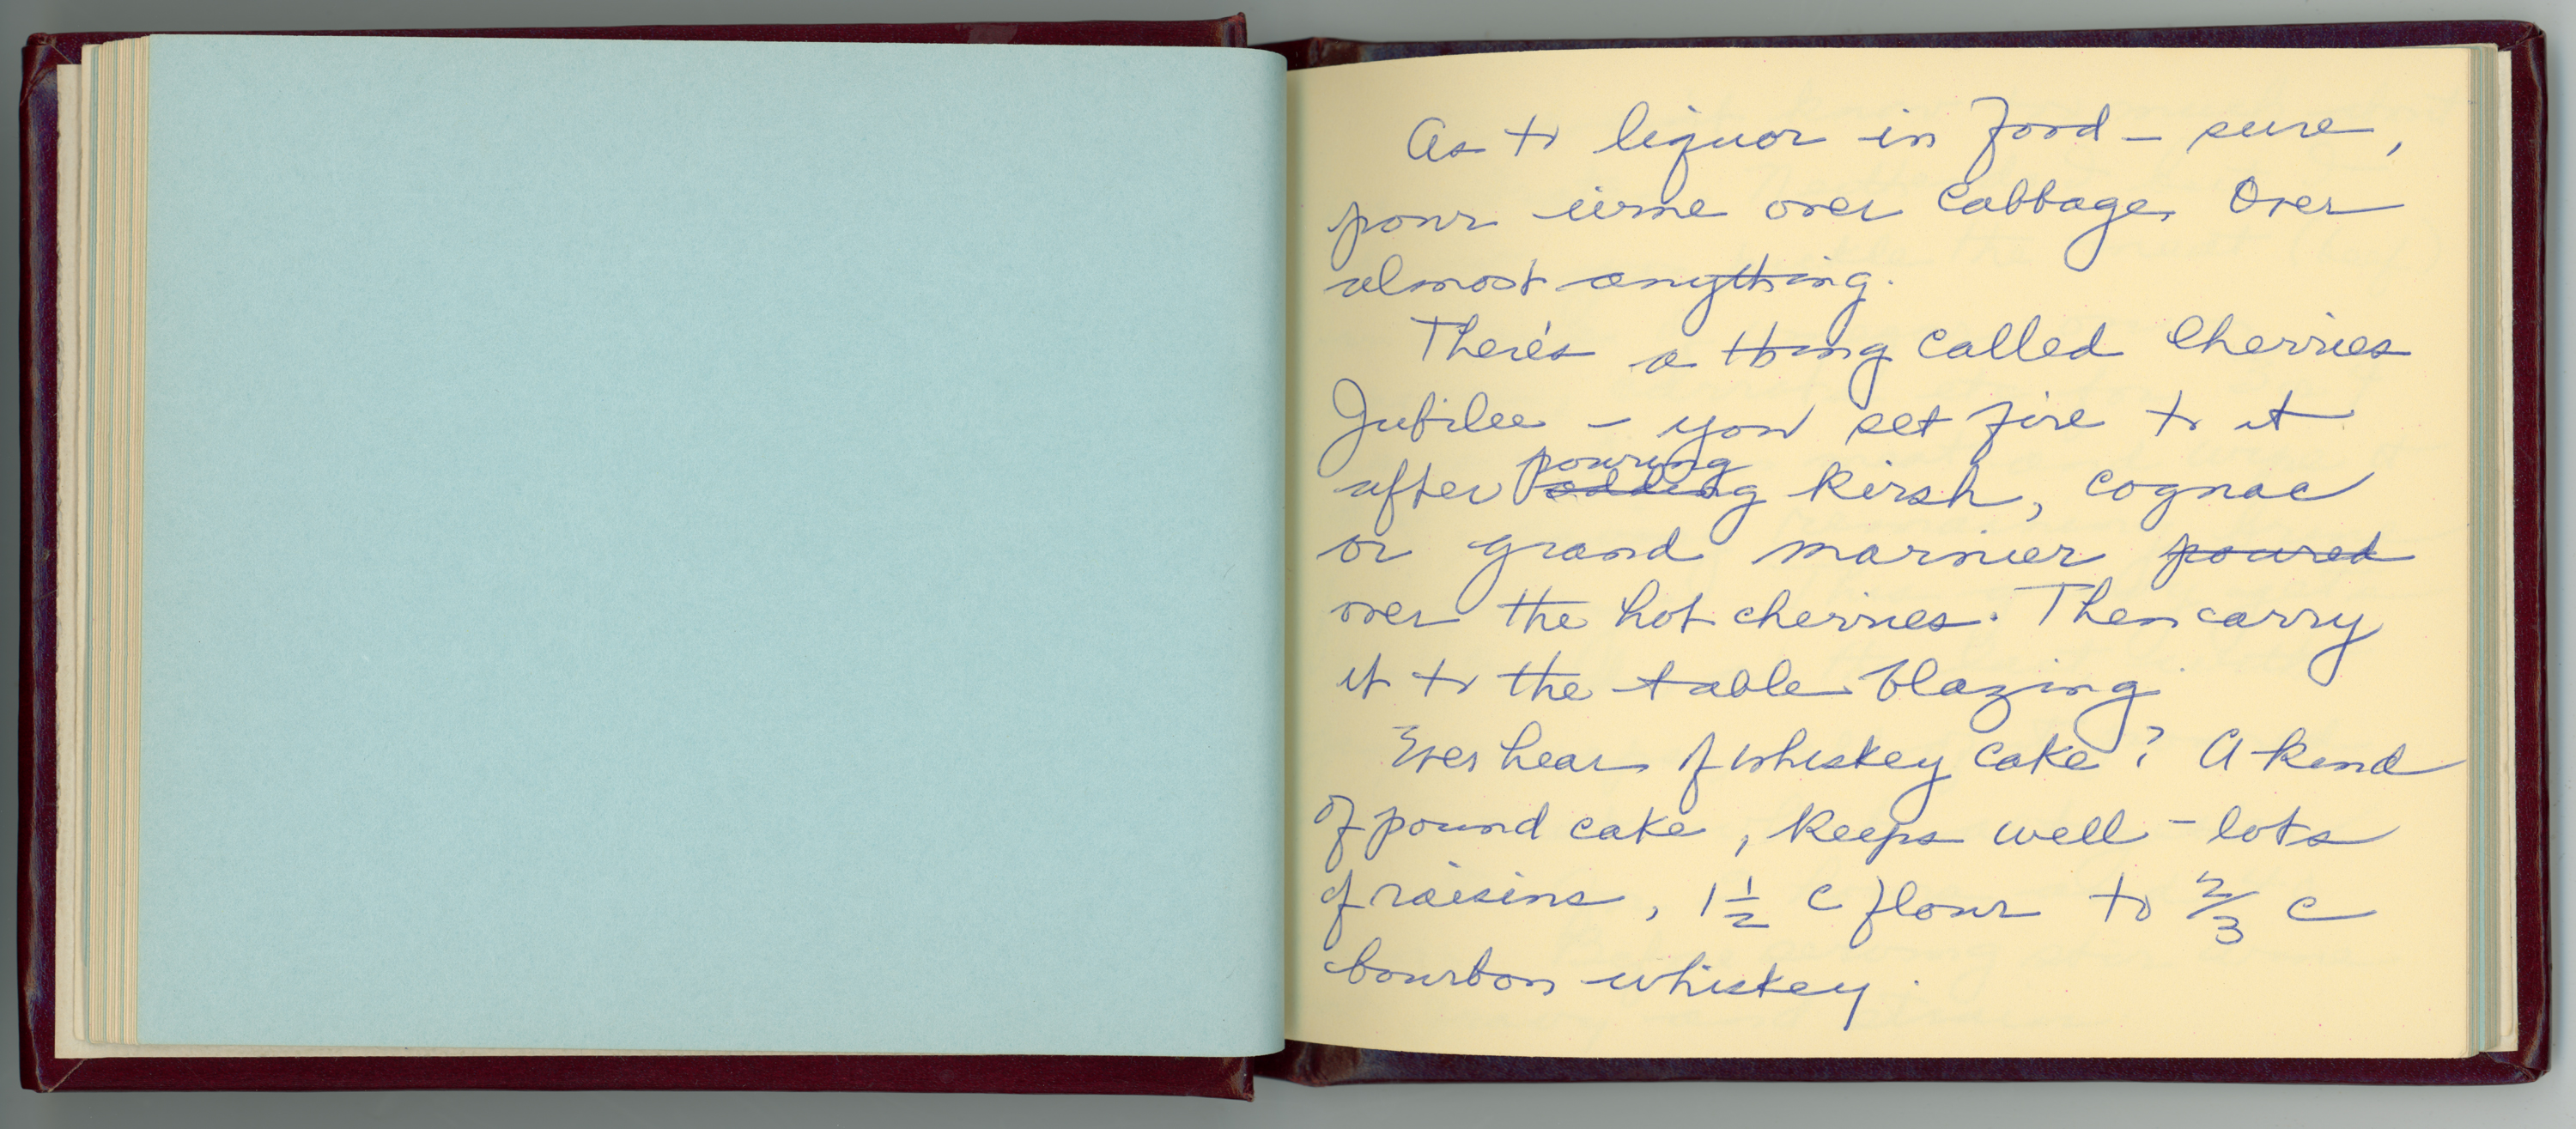 As to liquor in food – sure,
pour wine over cabbage. Over
almost anything.
There's a thing called Cherries
Jubilee – you set fire to it
pouring
after adding kirsh, cognac
or grand marnier poured
over the hot cherries. Then carry
it to the table blazing
Ever hear of whiskey cake? A kind
of pound cake, keeps well – lots
of raisins, 1 1/2 c flour to 2/3 c
bourbon whiskey.